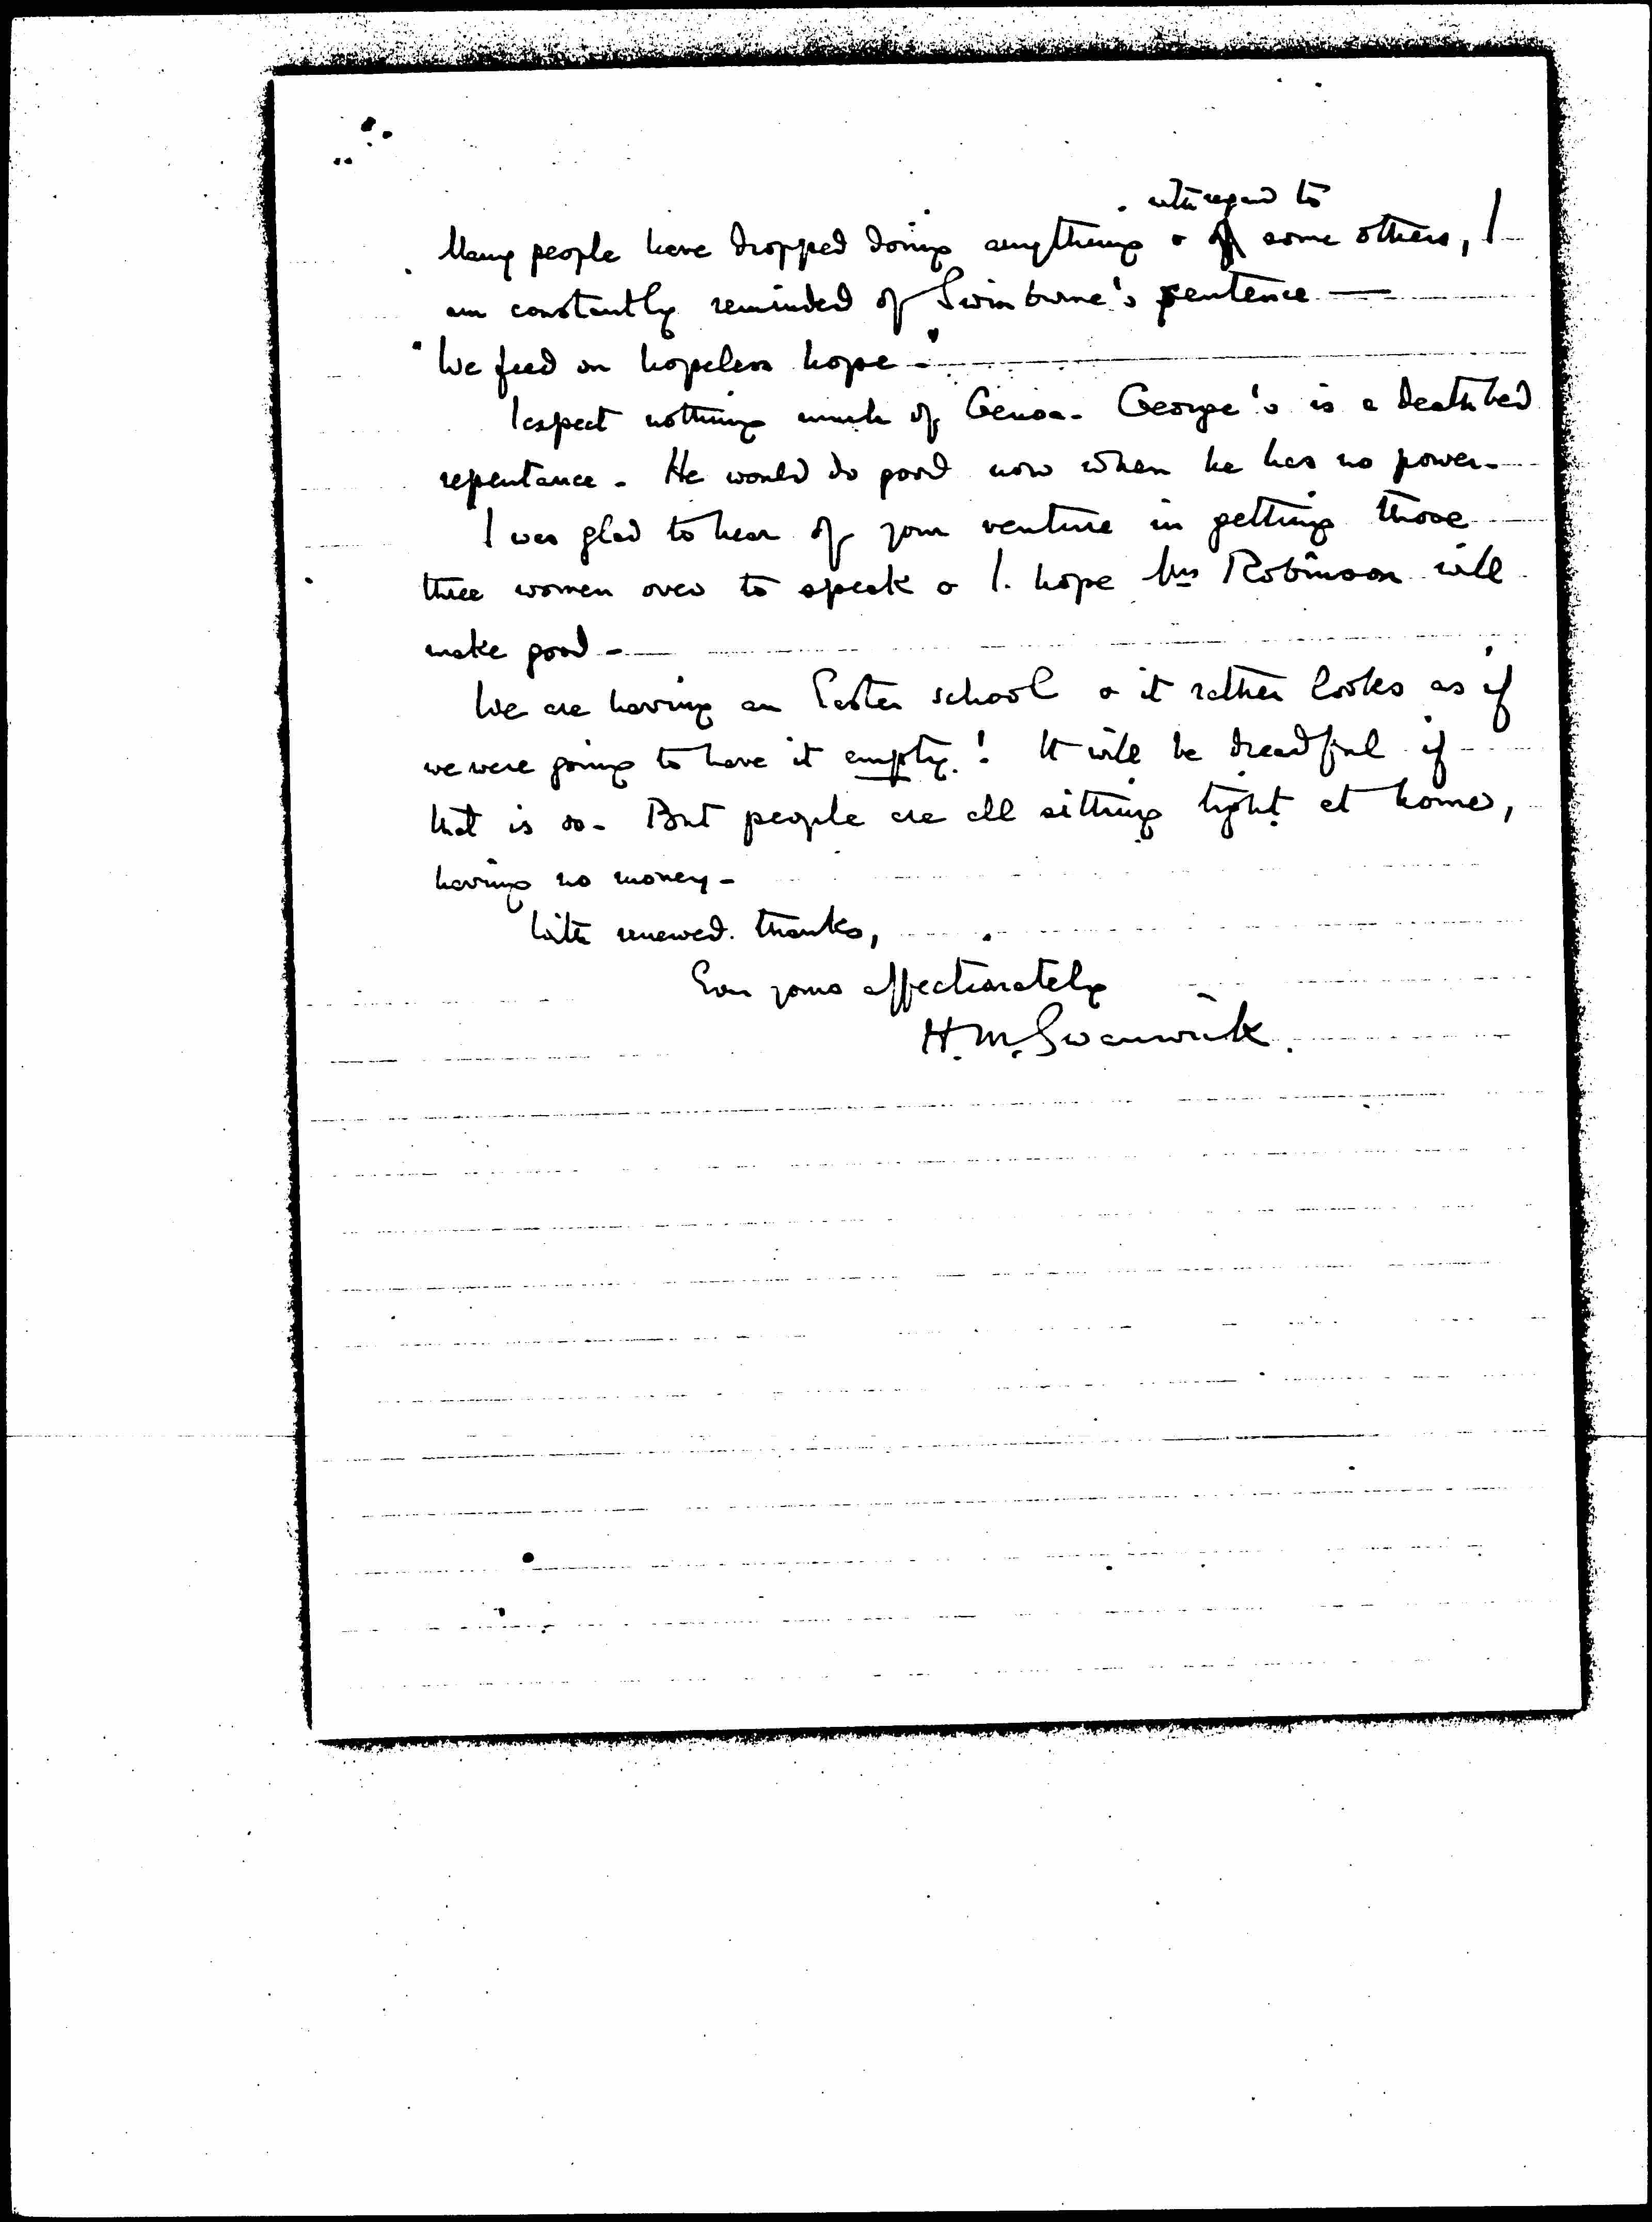 with regard to
Many people have dropped doing anything & of some others, I
am constantly reminded of Swinburne's sentence —
"We feed on hopeless hope -"
I expect nothing much of Genoa. George's is a deathbed
repentance. He would do good now when he has no power.
I was glad to hear of your venture in getting those
three women over to speak & I hope Mrs Robinson will
make good -
We are having an Easter school & it rather looks as if
we were going to have it empty! It will be dreadful if
that is so. But people are all sitting tight at home,
having no money -
With renewed thanks,
Ever yours affectionately
H. M. Swanwick.